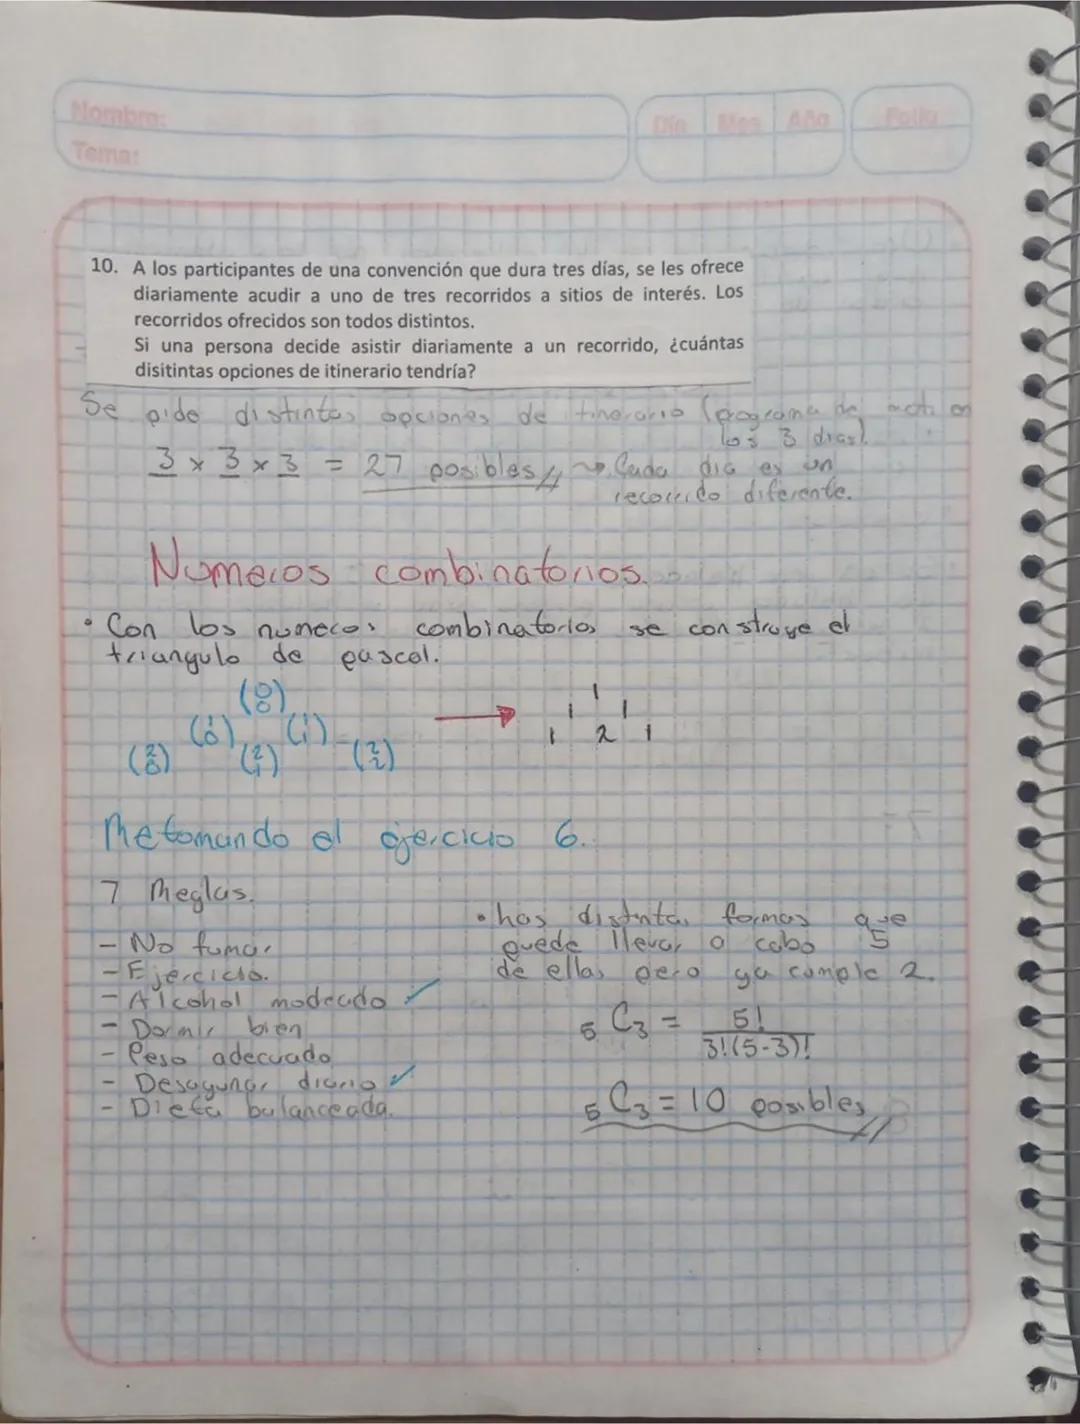 Nombre:
Tema:
Día Mes Año Folio
10. A los participantes de una convención que dura tres días, se les ofrece
diariamente acudir a uno de tres recorridos a sitios de interés. Los
recorridos ofrecidos son todos distintos.
Si una persona decide asistir diariamente a un recorrido, ¿cuántas
disitintas opciones de itinerario tendría?
Se pide distintas opciones de itinerario (programa de
los 3 dias).
3 x 3 x 3 = 27 posibles // → Cada dia es un
recorrido diferente.
Numeros combinatorios.
• Con los numeros combinatorios se construye el
triangulo de pascal.
(0 0) → 1
(1 0) (1 1) 1 1
(2 0) (2 1) (2 2) 1 2 1
Retomando el ejercicio 6.
7 Reglas.
- No fumar
- Ejercicio.
- Alcohol modeado ✓
- Dormir bien
- Peso adecuado
- Desayunar diario ✓
- Dieta balanceada.
• has distintas formas que
puede llevar a cabo 5
de ellas pero ya cumple 2.
5C3 = 5! / 3!(5-3)!
5C3 = 10 posibles //